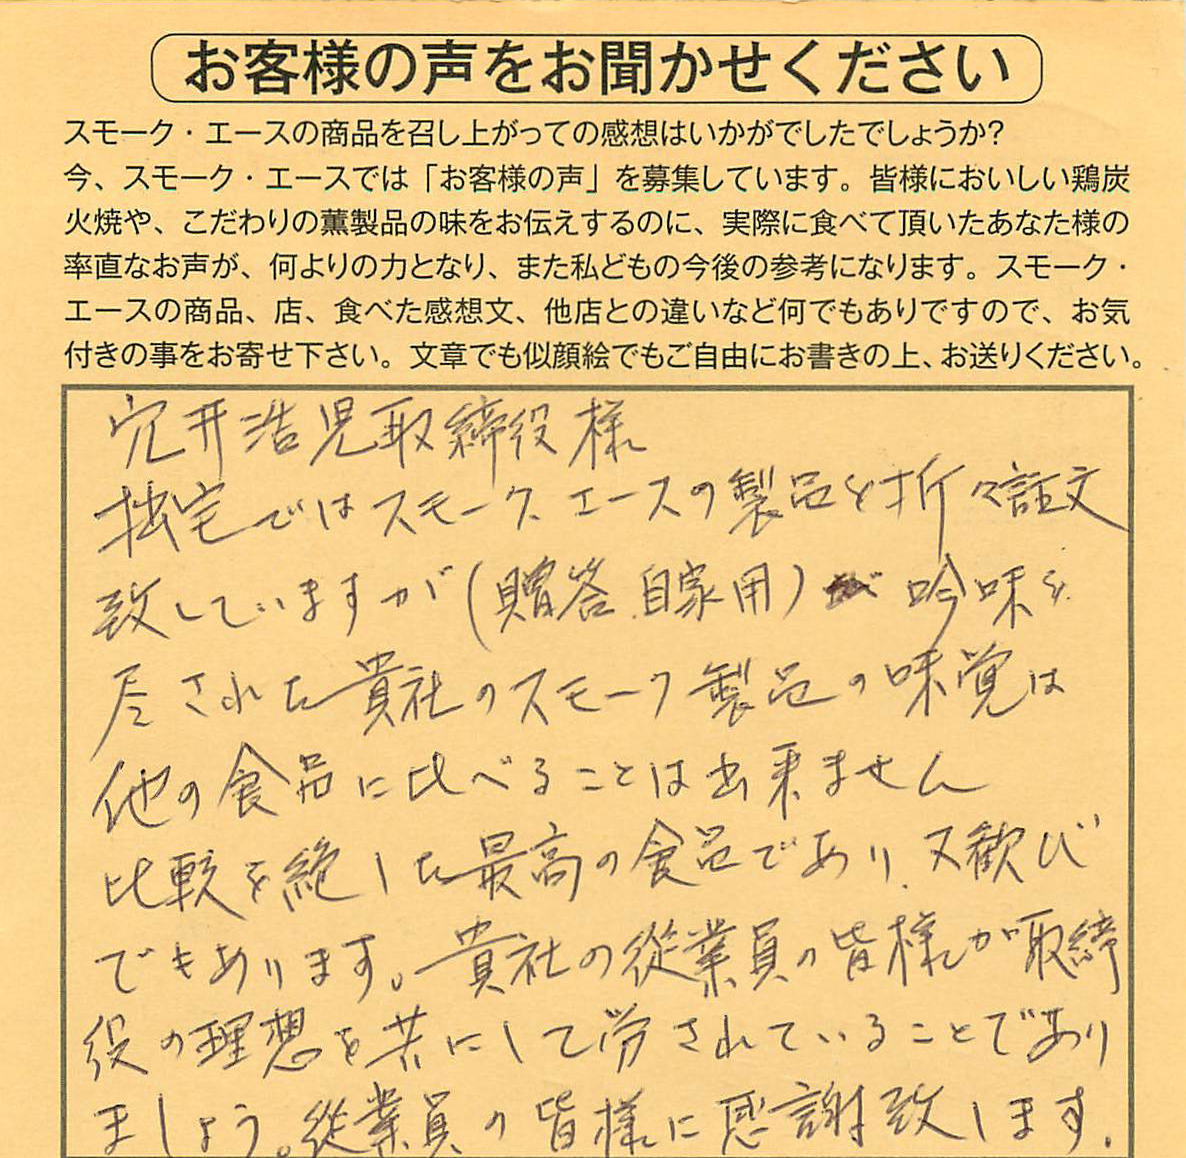 お客様の声をお聞かせください
スモーク・エースの商品を召し上がっての感想はいかがでしたでしょうか?
今、スモーク・エースでは「お客様の声」を募集しています。皆様においしい鶏炭
火焼や、こだわりの薫製品の味をお伝えするのに、実際に食べて頂いたあなた様の
率直なお声が、何よりの力となり、また私どもの今後の参考になります。スモーク・
エースの商品、店、食べた感想文、他店との違いなど何でもありですので、お気
付きの事をお寄せ下さい。文章でも似顔絵でもご自由にお書きの上、お送りください。
穴井浩児取締役様
拙宅ではスモークエースの製品を折々註文
致していますが(贈答、自家用)吟味を
尽された貴社のスモーク製品の味覚は
他の食品に比べることは出来ません
比較を絶した最高の食品であり、又歓び
でもあります。貴社の従業員の皆様が取締
役の理想を共にして労されていることであり
ましょう。従業員の皆様に感謝致します。